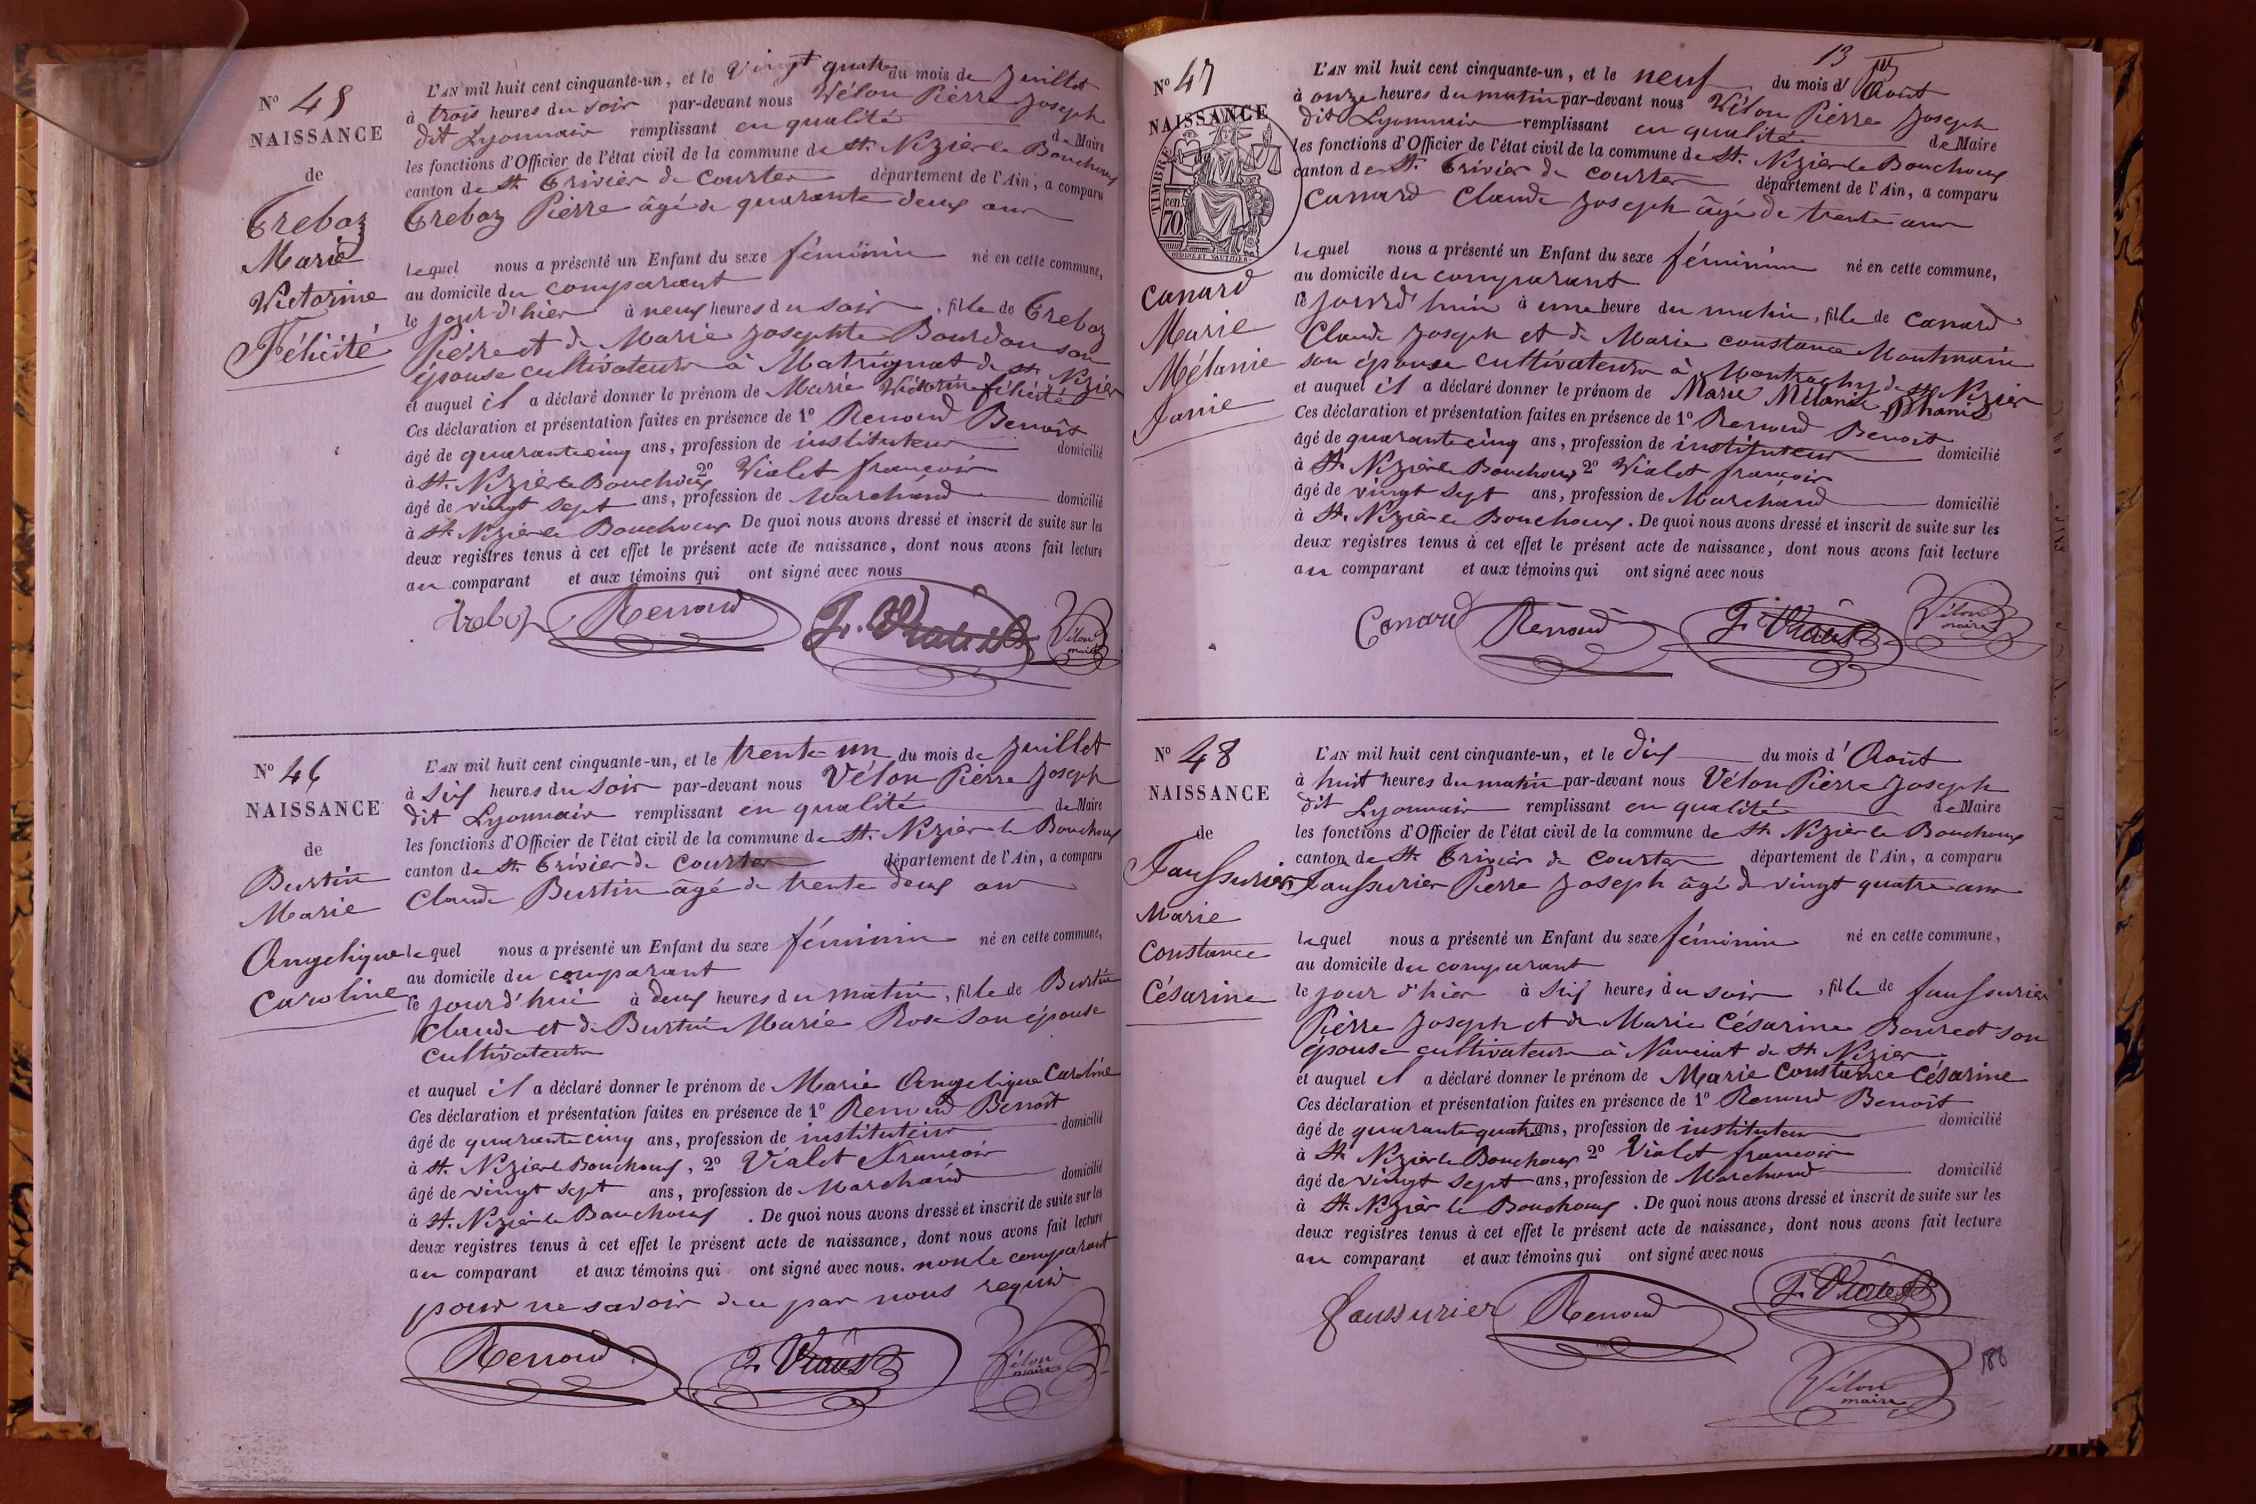 N° 45
NAISSANCE
de
Treboz
Marie
Victorine
Félicité
L'AN mil huit cent cinquante-un, et le Vingt quatre du mois de Juillet
à trois heures du soir par-devant nous Vélon Pierre Joseph
dit Lyonnais remplissant en qualité de Maire
les fonctions d'Officier de l'état civil de la commune de St. Nizier le Bouchoux
canton de St. Trivier de Courtes département de l'Ain, a comparu
Treboz Pierre âgé de quarante deux ans
lequel nous a présenté un Enfant du sexe féminin né en cette commune,
au domicile du comparant
le jour d'hier à neuf heures du soir, fille de Treboz
Pierre et de Marie Josephte Bourdon son
épouse cultivateurs à Matrignat de St. Nizier
et auquel il a déclaré donner le prénom de Marie Victorine félicité
Ces déclaration et présentation faites en présence de 1° Renoud Benoît
âgé de quarante cinq ans, profession de instituteur domicilié
à St. Nizier le Bouchoux 2° Vialet françois
âgé de vingt sept ans, profession de Marchand domicilié
à St. Nizier le Bouchoux De quoi nous avons dressé et inscrit de suite sur les
deux registres tenus à cet effet le présent acte de naissance, dont nous avons fait lecture
au comparant et aux témoins qui ont signé avec nous
treboz Renoud F. Vialet Vélon
maire
N° 46
NAISSANCE
de
Burtin
Marie
Angelique
Caroline
L'AN mil huit cent cinquante-un, et le trente un du mois de Juillet
à six heures du soir par-devant nous Vélon Pierre Joseph
dit Lyonnais remplissant en qualité de Maire
les fonctions d'Officier de l'état civil de la commune de St. Nizier le Bouchoux
canton de St. Trivier de Courtes département de l'Ain, a comparu
Claude Burtin âgé de trente deux ans
lequel nous a présenté un Enfant du sexe féminin né en cette commune,
au domicile du comparant
le jourd'hui à deux heures du matin, fille de Burtin
Claude et de Burtin Marie Rose son épouse
cultivateurs
et auquel il a déclaré donner le prénom de Marie Angelique Caroline
Ces déclaration et présentation faites en présence de 1° Renoud Benoît
âgé de quarante cinq ans, profession de instituteur domicilié
à St. Nizier le Bouchoux, 2° Vialet François
âgé de vingt sept ans, profession de Marchand domicilié
à St. Nizier le Bouchoux . De quoi nous avons dressé et inscrit de suite sur les
deux registres tenus à cet effet le présent acte de naissance, dont nous avons fait lecture
au comparant et aux témoins qui ont signé avec nous. non le comparant
pour ne savoir de ce par nous requis
Renoud F. Vialet Vélon
maire
13
N° 47
NAISSANCE
TIMBRE
cen
70
Canard
Marie
Mélanie
Janie
L'AN mil huit cent cinquante-un, et le neuf du mois d' Août
à onze heures du matin par-devant nous Vélon Pierre Joseph
dit Lyonnais remplissant en qualité de Maire
les fonctions d'Officier de l'état civil de la commune de St. Nizier le Bouchoux
canton de St. Trivier de Courtes département de l'Ain, a comparu
Canard Claude Joseph âgé de trente ans
lequel nous a présenté un Enfant du sexe féminin né en cette commune,
au domicile du comparant
le jourd'hui à une heure du matin, fille de Canard
Claude Joseph et de Marie Constance Montmain
son épouse cultivateurs à de St. Nizier
et auquel il a déclaré donner le prénom de Marie Mélanie
Ces déclaration et présentation faites en présence de 1° Renoud Benoît
âgé de quarante cinq ans, profession de instituteur domicilié
à St. Nizier le Bouchoux 2° Vialet françois
âgé de vingt sept ans, profession de Marchand domicilié
à St. Nizier le Bouchoux. De quoi nous avons dressé et inscrit de suite sur les
deux registres tenus à cet effet le présent acte de naissance, dont nous avons fait lecture
au comparant et aux témoins qui ont signé avec nous
Canard Renoud F. Vialet Vélon
maire
N° 48
NAISSANCE
de
Faussurier
Marie
Constance
Césarine
L'AN mil huit cent cinquante-un, et le dix du mois d' Août
à huit heures du matin par-devant nous Vélon Pierre Joseph
dit Lyonnais remplissant en qualité de Maire
les fonctions d'Officier de l'état civil de la commune de St. Nizier le Bouchoux
canton de St. Trivier de Courtes département de l'Ain, a comparu
Faussurier Pierre Joseph âgé de vingt quatre ans
lequel nous a présenté un Enfant du sexe féminin né en cette commune,
au domicile du comparant
le jour d'hier à six heures du soir, fille de faussurier
Pierre Joseph et de Marie Césarine Bourcet son
épouse cultivateurs à Navciat de St. Nizier
et auquel il a déclaré donner le prénom de Marie Constance Césarine
Ces déclaration et présentation faites en présence de 1° Renoud Benoît
âgé de quarante quatre ans, profession de instituteur domicilié
à St. Nizier le Bouchoux 2° Vialet françois
âgé de vingt sept ans, profession de Marchand domicilié
à St. Nizier le Bouchoux. De quoi nous avons dressé et inscrit de suite sur les
deux registres tenus à cet effet le présent acte de naissance, dont nous avons fait lecture
au comparant et aux témoins qui ont signé avec nous
faussurier Renoud F. Vialet
Vélon
maire
188